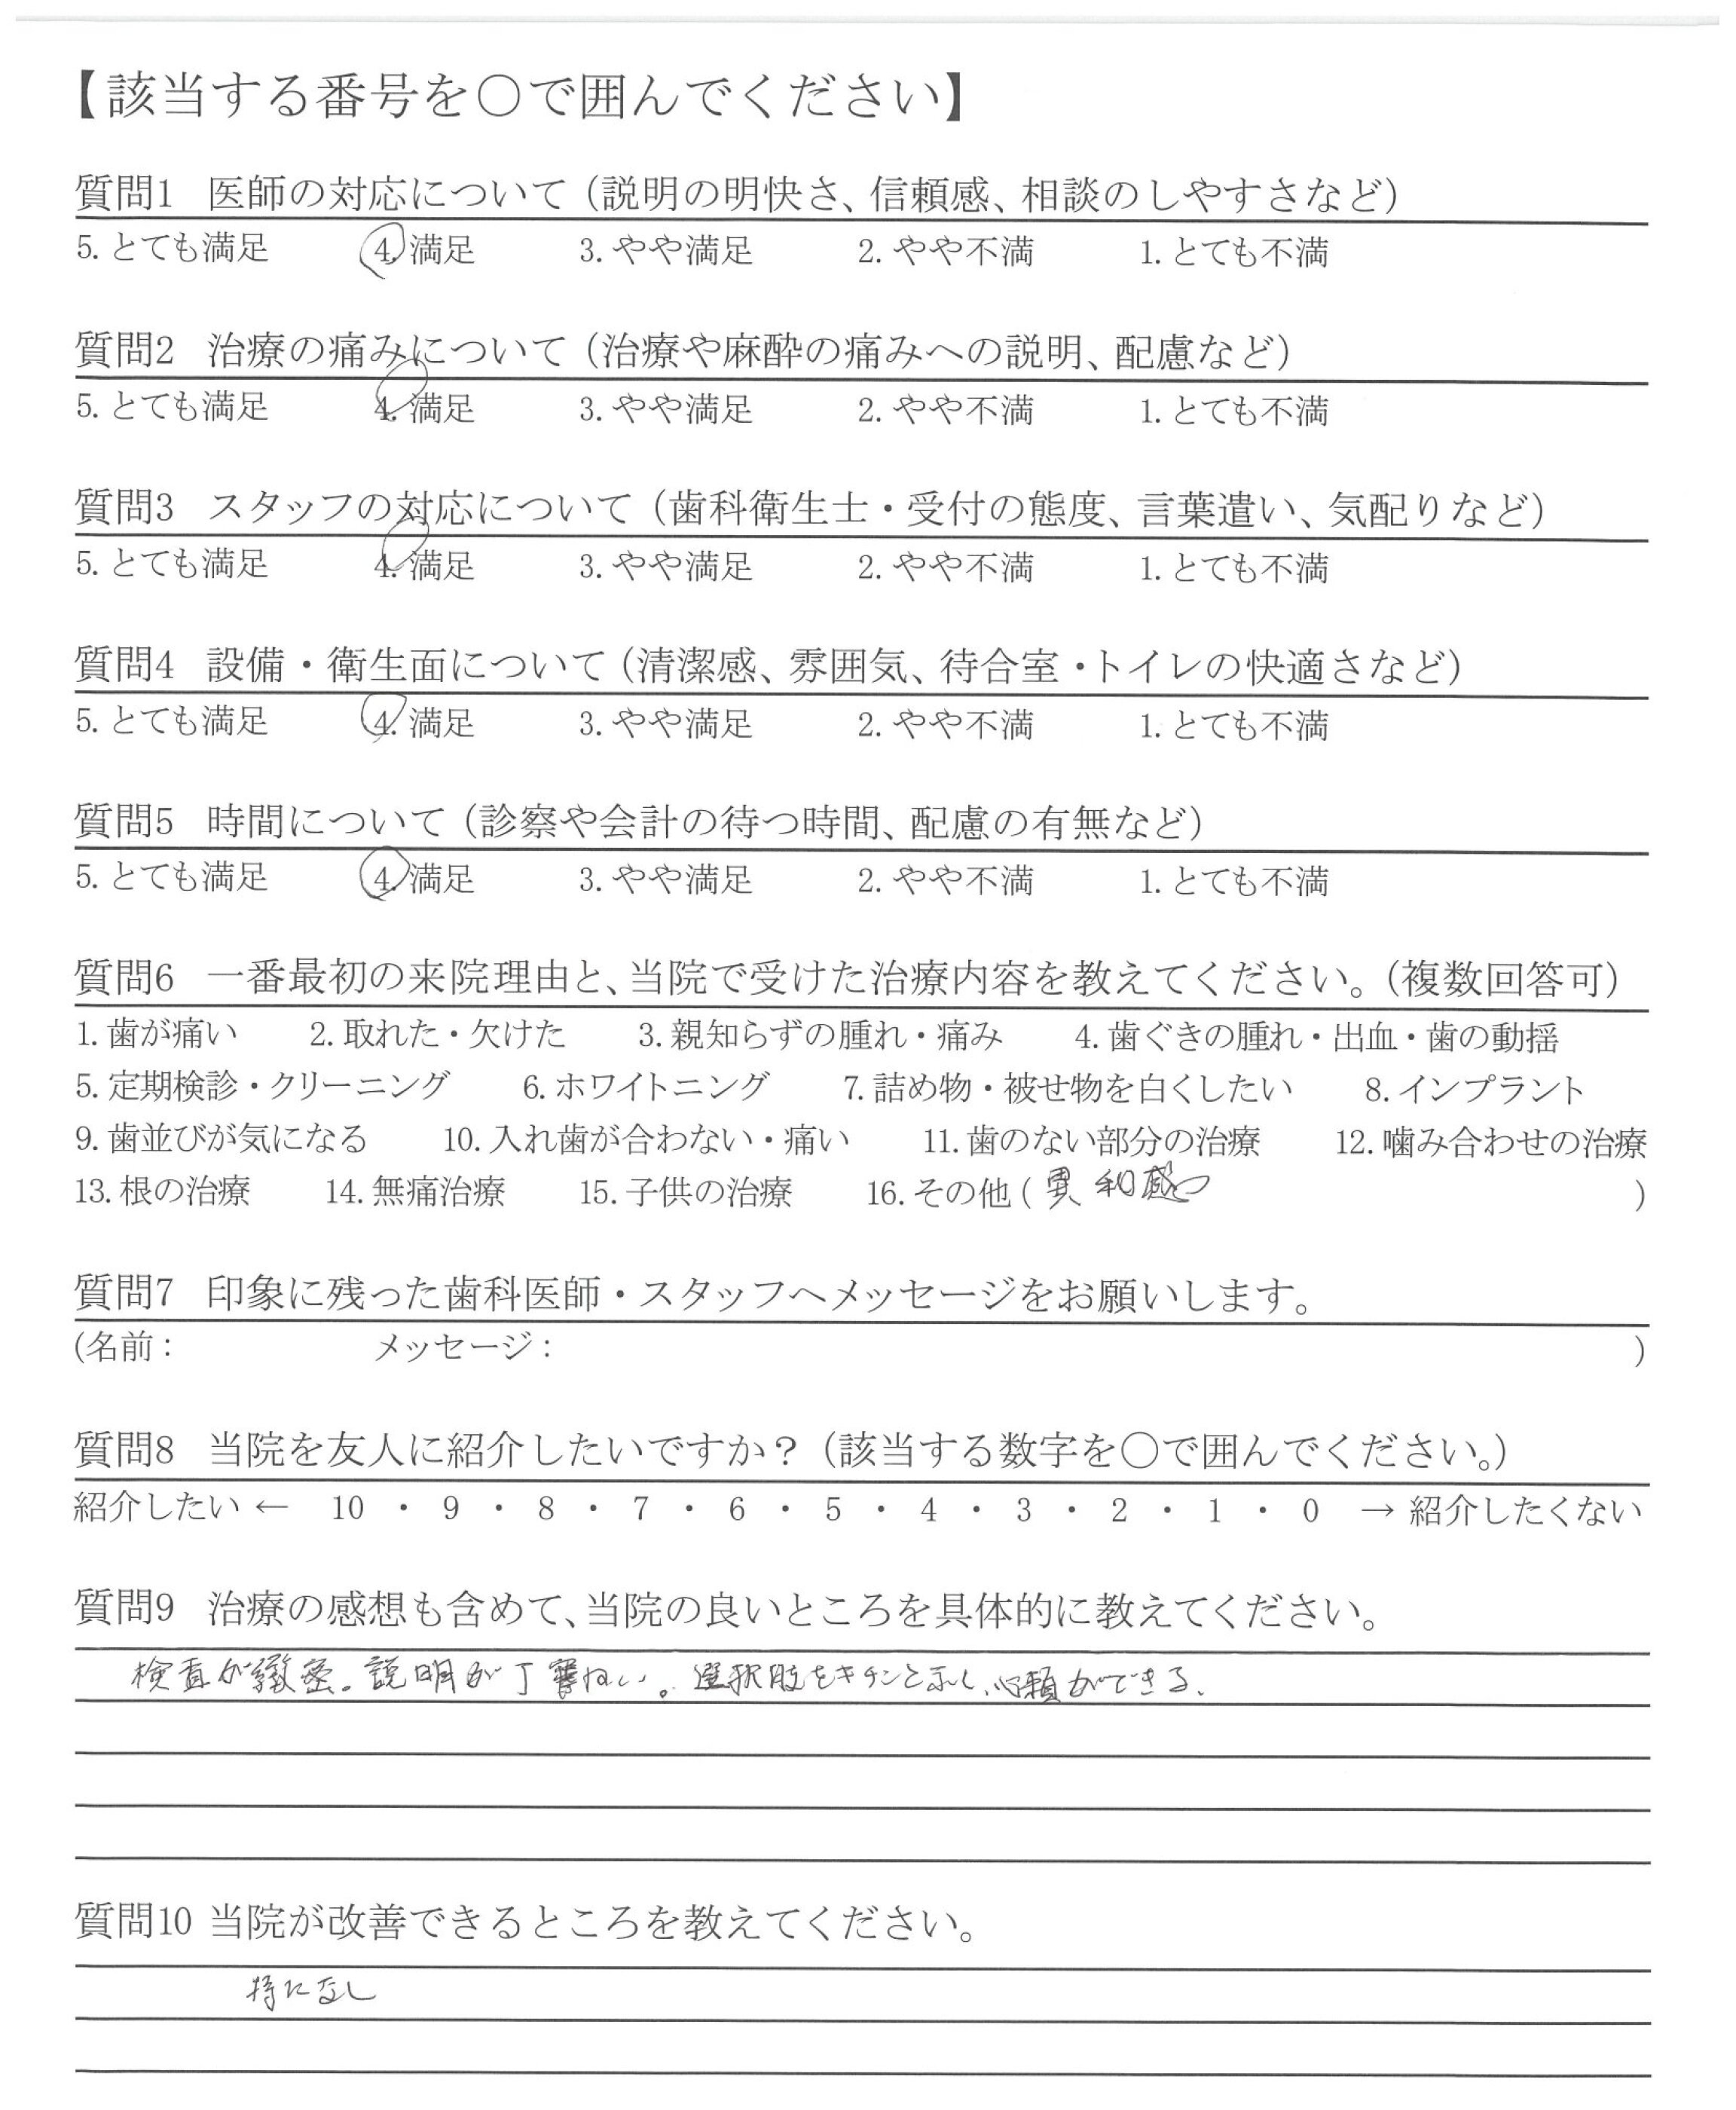 【該当する番号を○で囲んでください】
質問1 医師の対応について（説明の明快さ、信頼感、相談のしやすさなど）
5. とても満足 4. 満足 3. やや満足 2. やや不満 1. とても不満
質問2 治療の痛みについて（治療や麻酔の痛みへの説明、配慮など）
5. とても満足 4. 満足 3. やや満足 2. やや不満 1. とても不満
質問3 スタッフの対応について（歯科衛生士・受付の態度、言葉遣い、気配りなど）
5. とても満足 4. 満足 3. やや満足 2. やや不満 1. とても不満
質問4 設備・衛生面について（清潔感、雰囲気、待合室・トイレの快適さなど）
5. とても満足 4. 満足 3. やや満足 2. やや不満 1. とても不満
質問5 時間について（診察や会計の待つ時間、配慮の有無など）
5. とても満足 4. 満足 3. やや満足 2. やや不満 1. とても不満
質問6 一番最初の来院理由と、当院で受けた治療内容を教えてください。（複数回答可）
1. 歯が痛い 2. 取れた・欠けた 3. 親知らずの腫れ・痛み 4. 歯ぐきの腫れ・出血・歯の動揺
5. 定期検診・クリーニング 6. ホワイトニング 7. 詰め物・被せ物を白くしたい 8. インプラント
9. 歯並びが気になる 10. 入れ歯が合わない・痛い 11. 歯のない部分の治療 12. 噛み合わせの治療
13. 根の治療 14. 無痛治療 15. 子供の治療 16. その他 ( 異和感 )
質問7 印象に残った歯科医師・スタッフへメッセージをお願いします。
(名前： メッセージ： )
質問8 当院を友人に紹介したいですか？（該当する数字を○で囲んでください。）
紹介したい ← 10 ・ 9 ・ 8 ・ 7 ・ 6 ・ 5 ・ 4 ・ 3 ・ 2 ・ 1 ・ 0 → 紹介したくない
質問9 治療の感想も含めて、当院の良いところを具体的に教えてください。
検査が緻密。説明が丁寧ねい。選択肢をキチンと示し、頼ができる。
質問10 当院が改善できるところを教えてください。
特になし